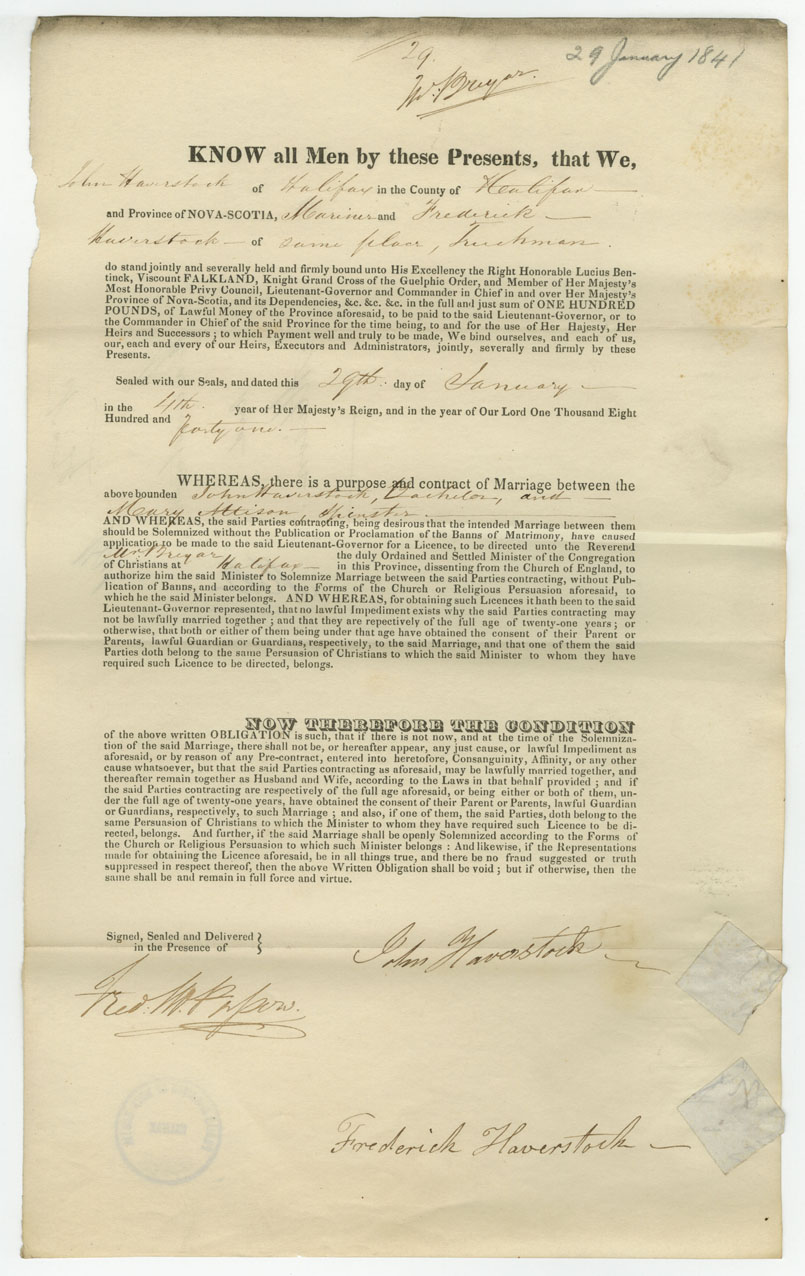 29.
29 January 1841
KNOW all Men by these Presents, that We,
John Haverstock of Halifax in the County of Halifax
and Province of NOVA-SCOTIA, Mariner and Frederick
Haverstock of same place, Truckman.
do stand jointly and severally held and firmly bound unto His Excellency the Right Honorable Lucius Ben-
tinck, Viscount FALKLAND, Knight Grand Cross of the Guelphic Order, and Member of Her Majesty's
Most Honorable Privy Council, Lieutenant-Governor and Commander in Chief in and over Her Majesty's
Province of Nova-Scotia, and its Dependencies, &c. &c. &c. in the full and just sum of ONE HUNDRED
POUNDS, of Lawful Money of the Province aforesaid, to be paid to the said Lieutenant-Governor, or to
the Commander in Chief of the said Province for the time being, to and for the use of Her Hajesty, Her
Heirs and Successors ; to which Payment well and truly to be made, We bind ourselves, and each of us,
our, each and every of our Heirs, Executors and Administrators, jointly, severally and firmly by these
Presents.
Sealed with our Seals, and dated this 29th. day of January
in the 4th. year of Her Majesty's Reign, and in the year of Our Lord One Thousand Eight
Hundred and forty one.
WHEREAS, there is a purpose and contract of Marriage between the
above bounden John Haverstock, Bachelor, and
Mary Allison, Spinster.
AND WHEREAS, the said Parties contracting, being desirous that the intended Marriage between them
should be Solemnized without the Publication or Proclamation of the Banns of Matrimony, have caused
application to be made to the said Lieutenant-Governor for a Licence, to be directed unto the Reverend
the duly Ordained and Settled Minister of the Congregation
of Christians at Halifax in this Province, dissenting from the Church of England, to
authorize him the said Minister to Solemnize Marriage between the said Parties contracting, without Pub-
lication of Banns, and according to the Forms of the Church or Religious Persuasion aforesaid, to
which he the said Minister belongs. AND WHEREAS, for obtaining such Licences it hath been to the said
Lieutenant-Governor represented, that no lawful Impediment exists why the said Parties contracting may
not be lawfully married together ; and that they are repectively of the full age of twenty-one years ; or
otherwise, that both or either of them being under that age have obtained the consent of their Parent or
Parents, lawful Guardian or Guardians, respectively, to the said Marriage, and that one of them the said
Parties doth belong to the same Persuasion of Christians to which the said Minister to whom they have
required such Licence to be directed, belongs.
NOW THEREFORE THE CONDITION
of the above written OBLIGATION is such, that if there is not now, and at the time of the Solemniza-
tion of the said Marriage, there shall not be, or hereafter appear, any just cause, or lawful Impediment as
aforesaid, or by reason of any Pre-contract, entered into heretofore, Consanguinity, Affinity, or any other
cause whatsoever, but that the said Parties contracting as aforesaid, may be lawfully married together, and
thereafter remain together as Husband and Wife, according to the Laws in that behalf provided ; and if
the said Parties contracting are respectively of the full age aforesaid, or being either or both of them, un-
der the full age of twenty-one years, have obtained the consent of their Parent or Parents, lawful Guardian
or Guardians, respectively, to such Marriage ; and also, if one of them, the said Parties, doth belong to the
same Persuasion of Christians to which the Minister to whom they have required such Licence to be di-
rected, belongs. And further, if the said Marriage shall be openly Solemnized according to the Forms of
the Church or Religious Persuasion to which such Minister belongs : And likewise, if the Representations
made for obtaining the Licence aforesaid, be in all things true, and there be no fraud suggested or truth
suppressed in respect thereof, then the above Written Obligation shall be void ; but if otherwise, then the
same shall be and remain in full force and virtue.
Signed, Sealed and Delivered
in the Presence of
John Haverstock
Fred. W.
Frederick Haverstock